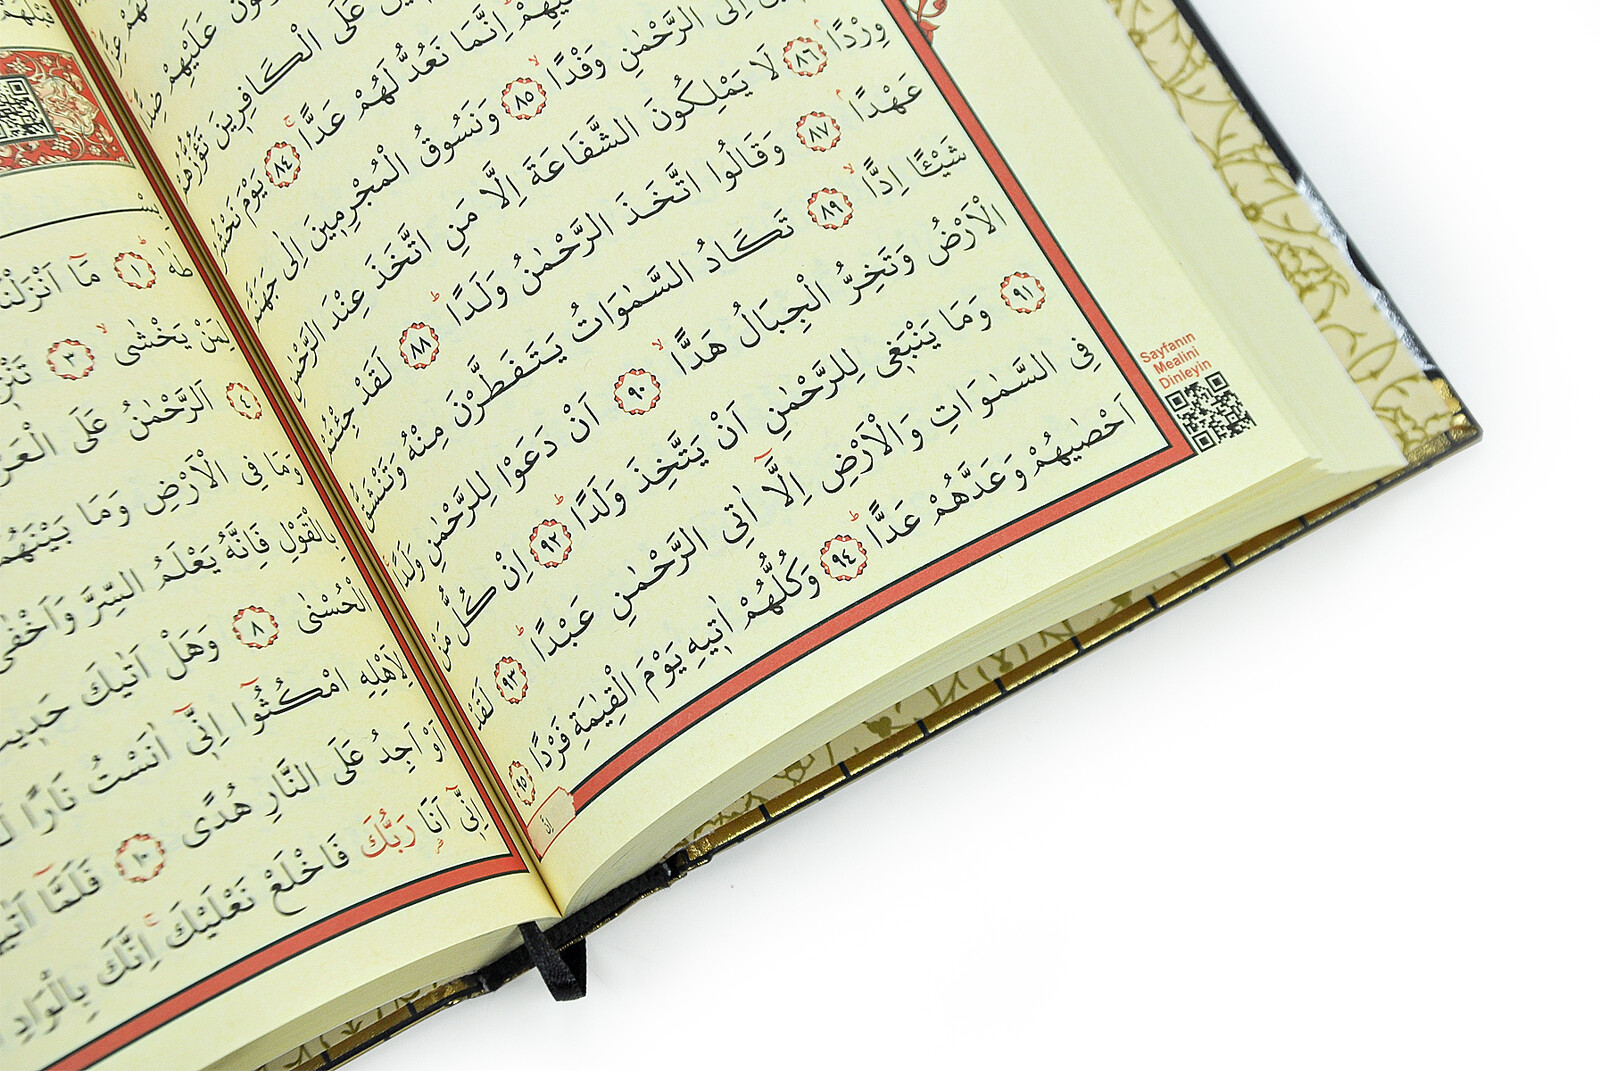 عَلَيْهِمْ ضِدًّا
عَلَى الْكَافِرِينَ تَؤُزُّهُمْ
اِنَّمَا نَعُدُّ لَهُمْ عَدًّا ﴿٨٤﴾ يَوْمَ نَحْشُرُ
اِلَى الرَّحْمٰنِ وَفْدًا ﴿٨٥﴾ وَنَسُوقُ الْمُجْرِمِينَ اِلٰى جَهَنَّمَ
وِرْدًا ﴿٨٦﴾ لَا يَمْلِكُونَ الشَّفَاعَةَ اِلَّا مَنِ اتَّخَذَ عِنْدَ الرَّحْمٰنِ
عَهْدًا ﴿٨٧﴾ وَقَالُوا اتَّخَذَ الرَّحْمٰنُ وَلَدًا ﴿٨٨﴾ لَقَدْ جِئْتُمْ
شَيْـًٔا اِدًّا ﴿٨٩﴾ تَكَادُ السَّمٰوَاتُ يَتَفَطَّرْنَ مِنْهُ وَتَنْشَقُّ
الْاَرْضُ وَتَخِرُّ الْجِبَالُ هَدًّا ﴿٩٠﴾ اَنْ دَعَوْا لِلرَّحْمٰنِ وَلَدًا
﴿٩١﴾ وَمَا يَنْبَغِي لِلرَّحْمٰنِ اَنْ يَتَّخِذَ وَلَدًا ﴿٩٢﴾ اِنْ كُلُّ مَنْ
فِي السَّمٰوَاتِ وَالْاَرْضِ اِلَّٓا اٰتِي الرَّحْمٰنِ عَبْدًا ﴿٩٣﴾ لَقَدْ
اَحْصٰيهُمْ وَعَدَّهُمْ عَدًّا ﴿٩٤﴾ وَكُلُّهُمْ اٰتِيهِ يَوْمَ الْقِيٰمَةِ فَرْدًا ﴿٩٥﴾
Sayfanın
Mealini
Dinleyin
طٰهٰ ﴿١﴾ مَٓا اَنْزَلْنَا
لِمَنْ يَخْشٰى ﴿٣﴾
﴿٤﴾ اَلرَّحْمٰنُ عَلَى الْعَرْ
وَمَا فِي الْاَرْضِ وَمَا بَيْنَهُمَا
بِالْقَوْلِ فَاِنَّهُ يَعْلَمُ السِّرَّ وَاَخْفٰى
الْحُسْنٰى ﴿٨﴾ وَهَلْ اَتٰيكَ حَدِيثُ
لِاَهْلِهِ امْكُثُٓوا اِنِّٓي اٰنَسْتُ نَارًا
اَوْ اَجِدُ عَلَى النَّارِ هُدًى ﴿١٠﴾ فَلَمَّٓا اَتٰيهَا
اِنِّٓي اَنَا۬ رَبُّكَ فَاخْلَعْ نَعْلَيْكَ اِنَّكَ بِالْوَادِ